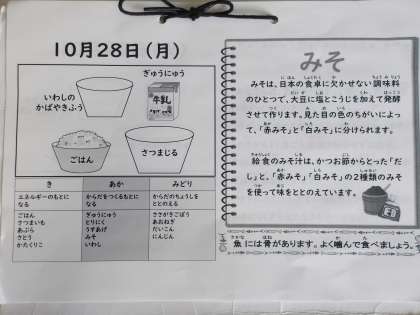 10月28日(月)
ぎゅうにゅう
牛乳
いわしの
かばやきふう
ごはん
さつまじる
き
あか
みどり
エネルギーのもとに
なる
からだをつくるもとに
なる
からだのちょうしを
ととのえる
ごはん
さつまいも
あぶら
さとう
かたくりこ
ぎゅうにゅう
とりにく
うすあげ
みそ
いわし
ささがきごぼう
あおねぎ
だいこん
にんじん
みそ
みそは、日本の食卓に欠かせない調味料
のひとつで、大豆に塩とこうじを加えて発酵
させて作ります。見た目の色のちがいによっ
て、「赤みそ」と「白みそ」に分けられます。
給食のみそ汁は、かつお節からとった「だ
し」と、「赤みそ」「白みそ」の2種類のみそ
を使って味をととのえています。
魚には骨があります。よく噛んで食べましょう。